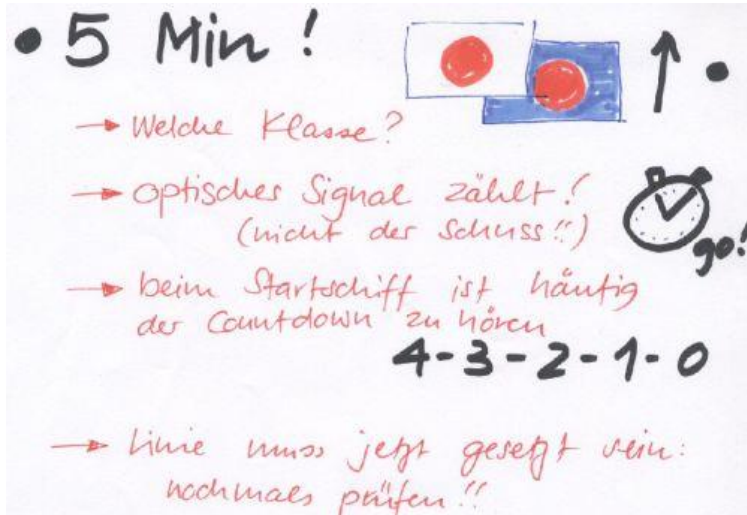 • 5 Min!
→ Welche Klasse?
→ optischer Signal zählt!
(nicht der Schuss!!)
go!
→ beim Startschiff ist häufig
der Countdown zu hören
4-3-2-1-0
→ Linie muss jetzt gesetzt sein:
nochmals prüfen!!